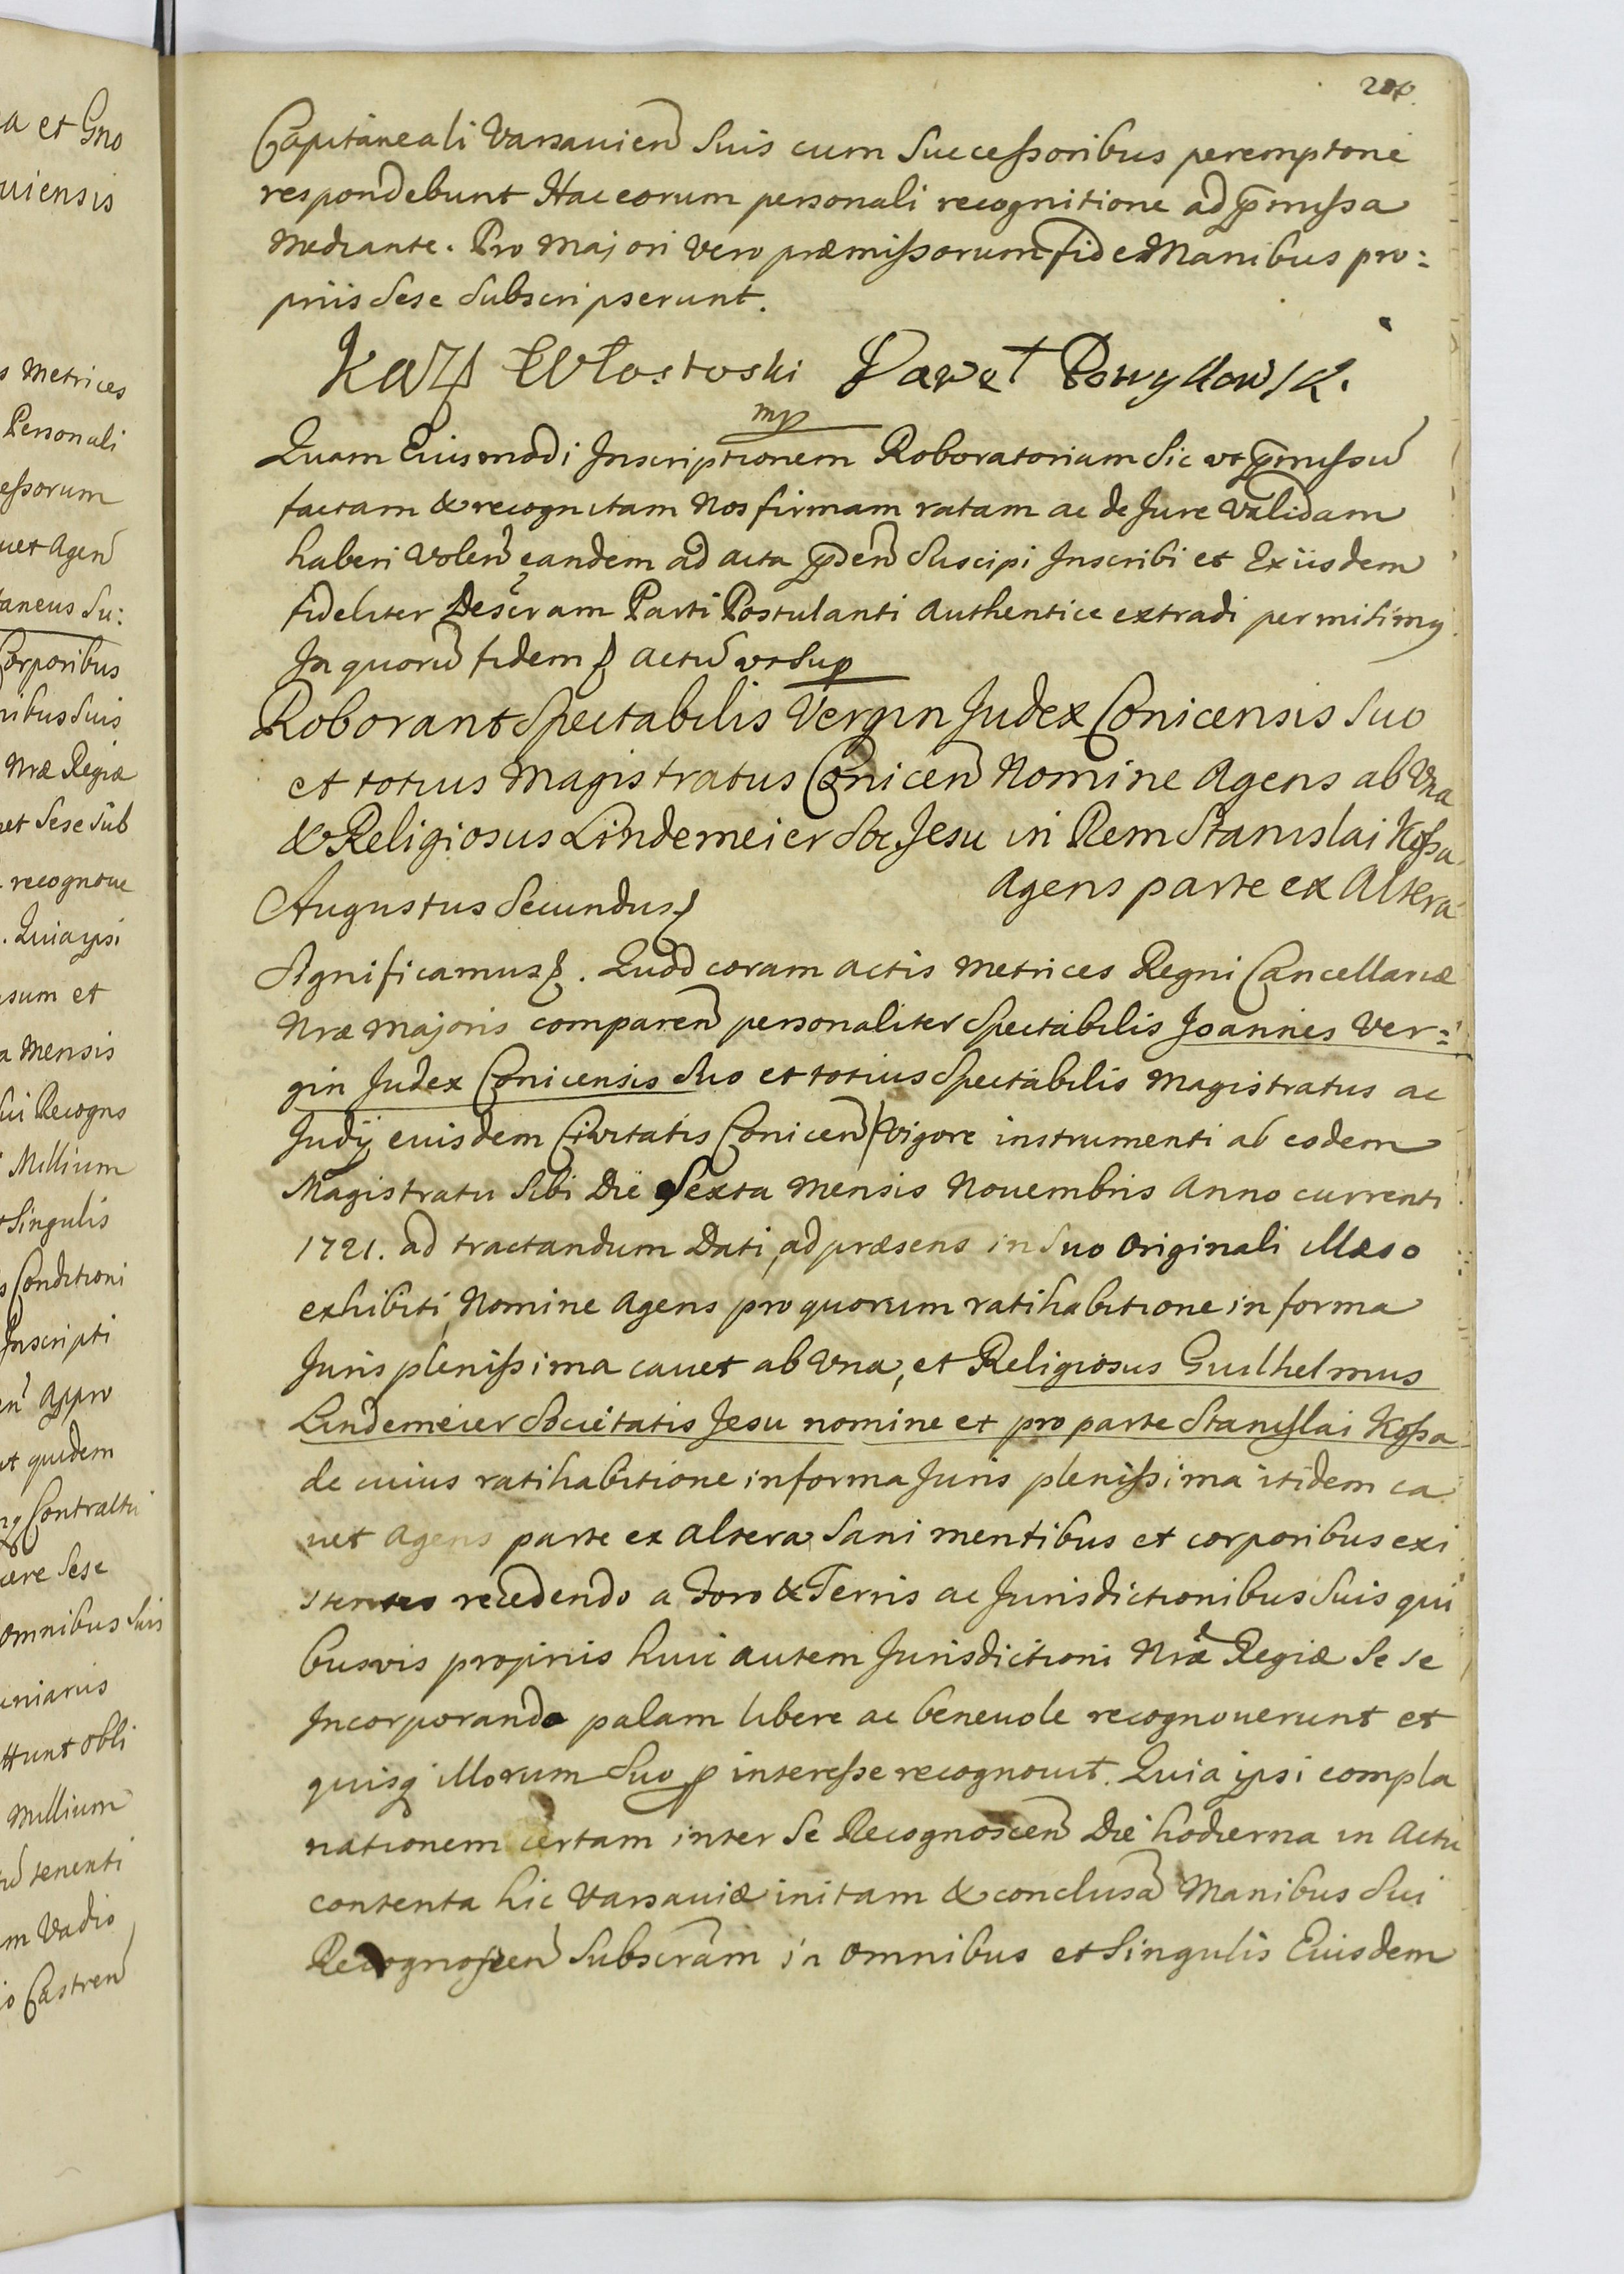 Capitaneali Varsavień Suis cum Successoribus peremptorie
respondebunt Hac eorum personali recognitione ad p̄missa
Mediante. Pro Majori vero præmissorum fide Manibus pro:
priis Sese Subscripserunt.
Paweł
mp
Quam Eiusmodi Inscriptionem Roboratoriam Sic ut p̄missū
factam & recognitam Nos firmam ratam ac de Jure Validam
haberi Voleń eandem ad acta p̄deń Suscipi Inscribi et Exiisdem
fideliter Descram Parti Postulanti Authentice extradi permisimꝰ
In quorū fidem Actū ut Sup
Roborant Spectabilis Vergin Judex Conicensis Suo
et totius Magistratus Coniceń Nomine Agens ab Vna
& Religiosus Lindemeier Soc. Jesu in Rem Stanislai Kossa
Agens parte ex Altera
Augustus Secundus
Significamus. Quod coram actis Metrices Regni Cancellariæ
Nræ Majoris compareń personaliter Spectabilis Joannes Ver=
gin Judex Conicensis Suo et totius Spectabilis Magistratus ac
Judij eiusdem Civitatis Coniceń Vigore instrumenti ab eodem
Magistratu Sibi Die Sexta Mensis Nouembris Anno currenti
1721. ad tractandum Dati, ad præsens in Suo Originali illæso
exhibiti, Nomine Agens pro quorum ratihabitione in forma
Juris plenissima cauet ab Vna, et Religiosus Guilhelmus
Lindemeier Societatis Jesu nomine et pro parte Stanislai Kossa
de cuius ratihabitione in forma Juris plenissima itidem ca
uet Agens parte ex altera Sani mentibus et corporibus exi
stentes recedendo a Foro & Terris ac Jurisdictionibus Suis qui
busvis propriis huic autem Jurisdictioni Nræ Regiæ Se se
Incorporando palam libere ac beneuole recognouerunt et
quisq illorum Suo p interesse recognouit. Quia ipsi compla
nationem certam inter Se Recognosceń Die hodierna in Actu
contenta hic Varsaviæ initam & conclusā Manibus Sui
Recognosceń Subscram in omnibus et Singulis Eiusdem